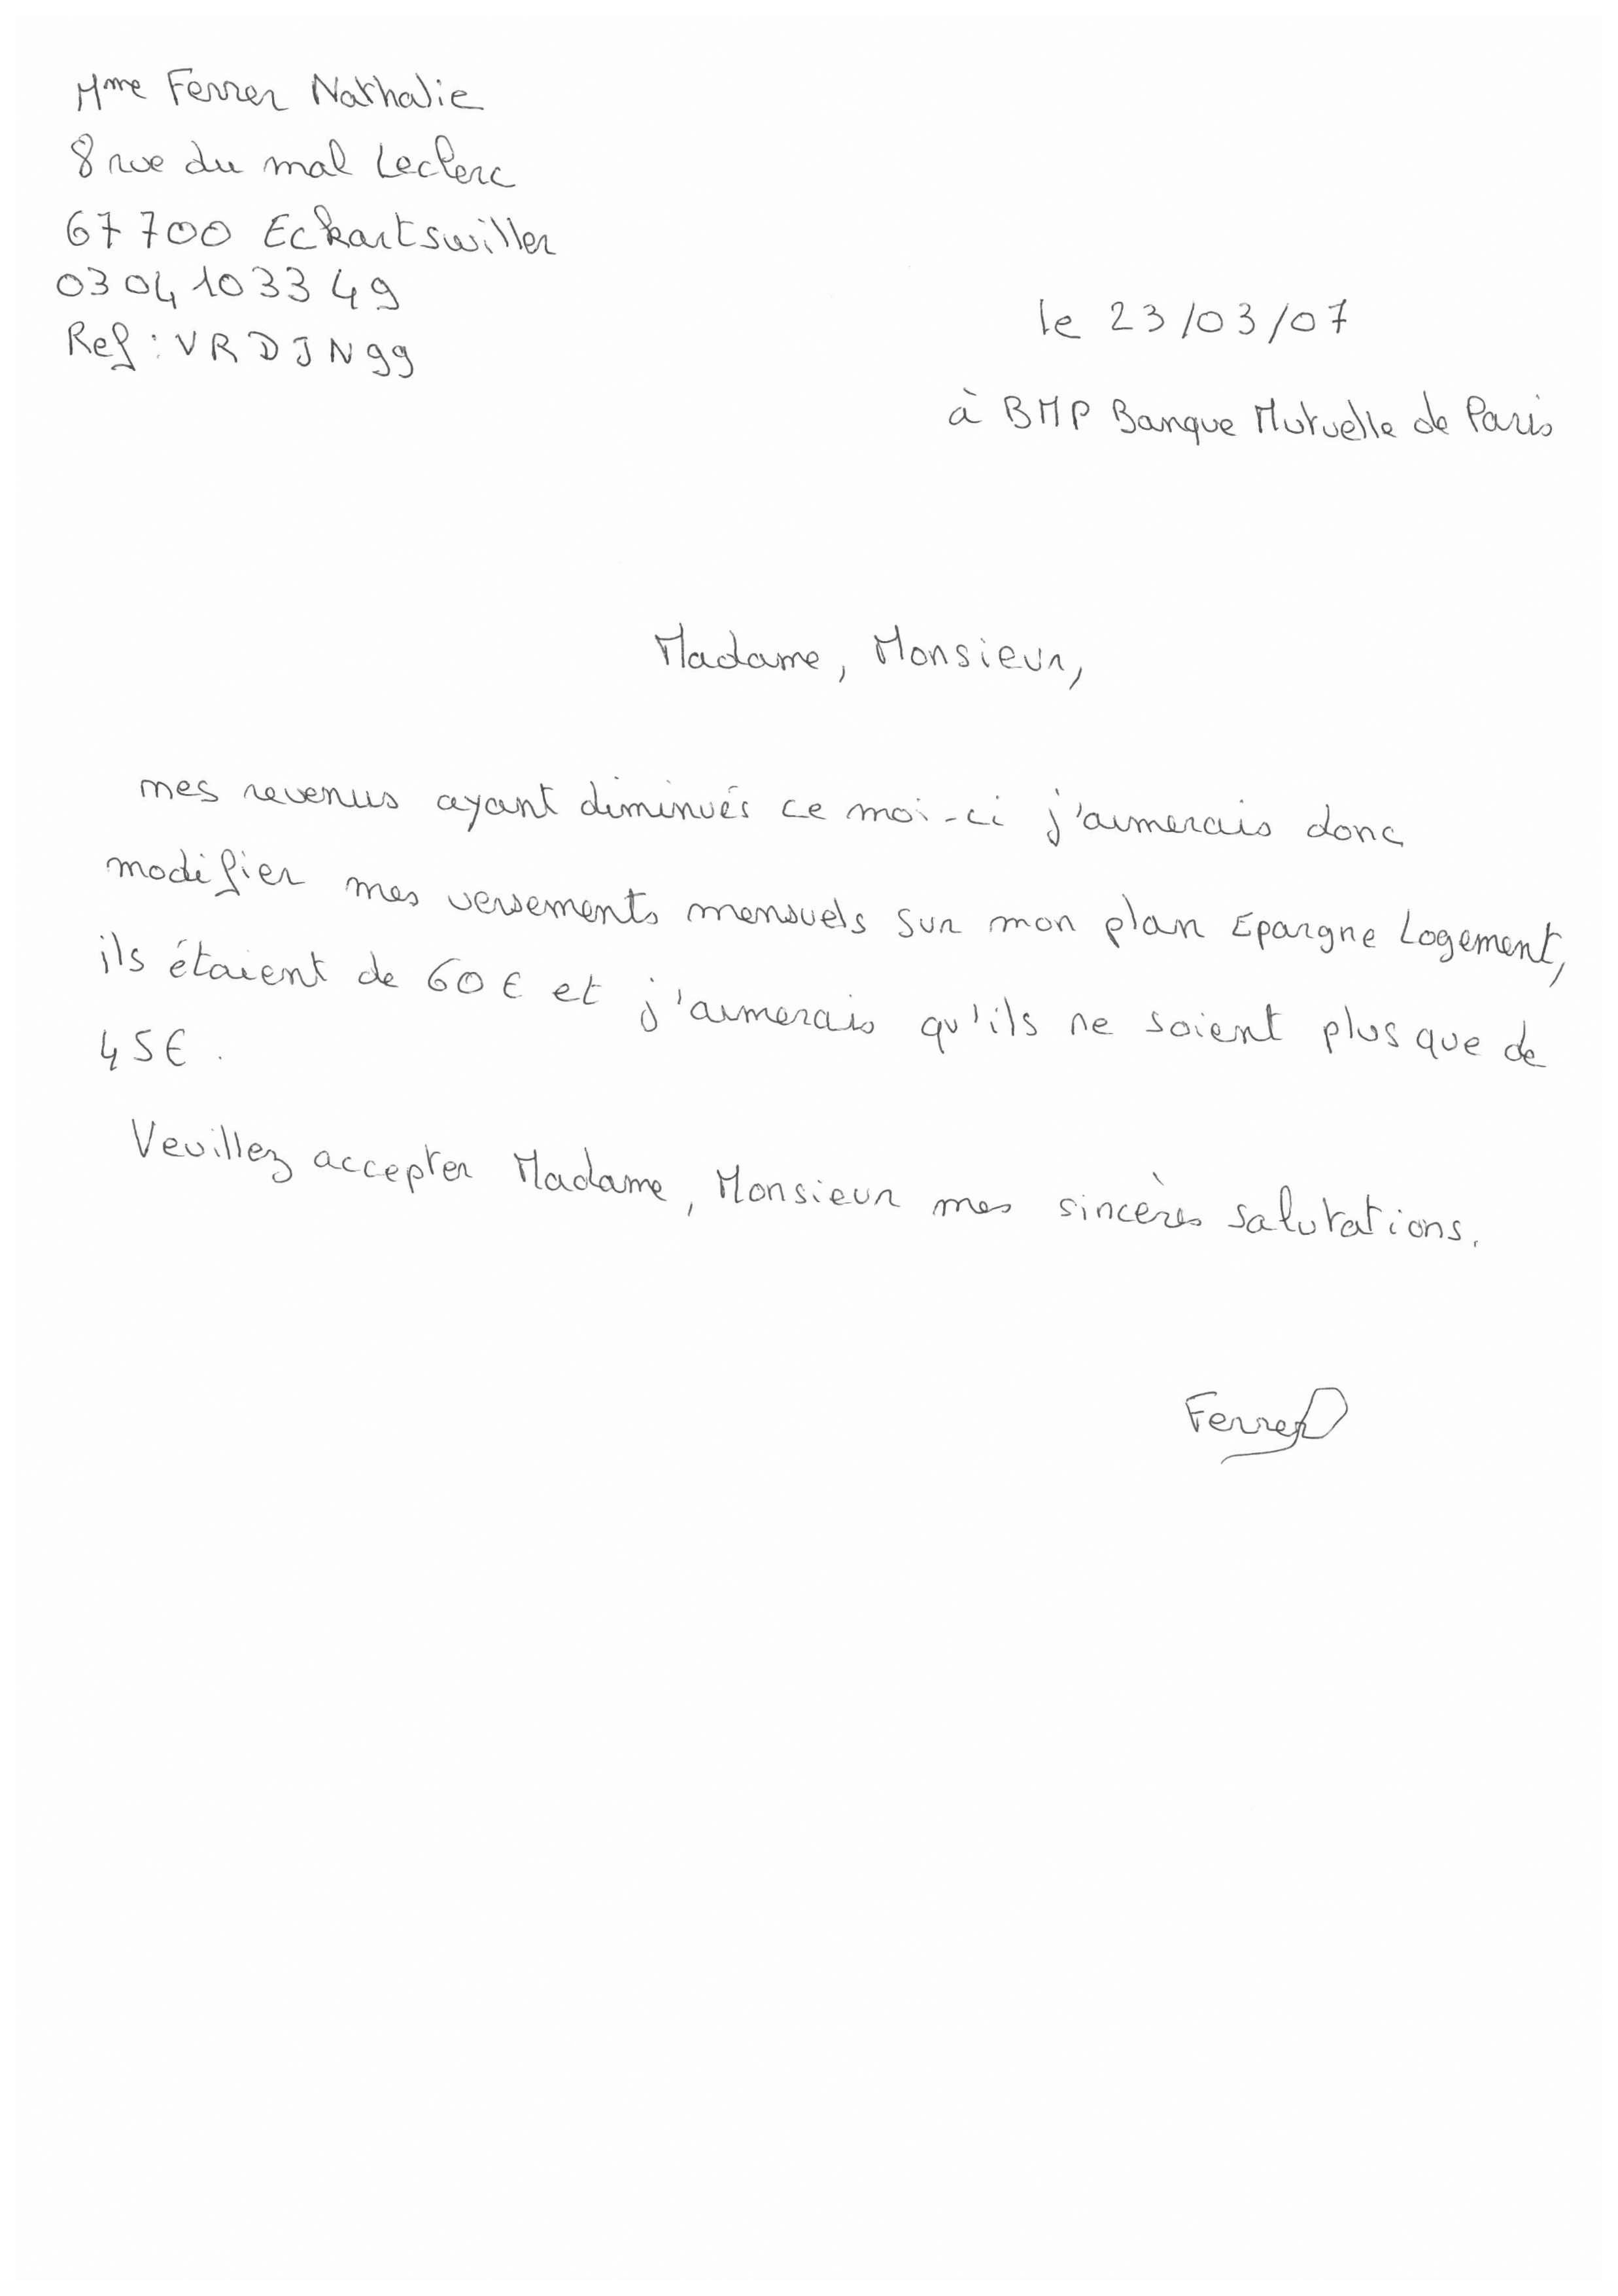 Mme Ferrer Nathalie
8 rue du mal Leclerc
67700 Eckartswiller
03 04 10 33 49
Ref : VRDJN99
le 23/03/07
à BMP Banque Mutuelle de Paris
Madame, Monsieur,
mes revenus ayant diminués ce moi-ci j'aimerais donc
modifier mes versements mensuels sur mon plan Epargne Logement,
ils étaient de 60€ et j'aimerais qu'ils ne soient plus que de
45€.
Veuillez accepter Madame, Monsieur mes sincères salutations.
Ferrer